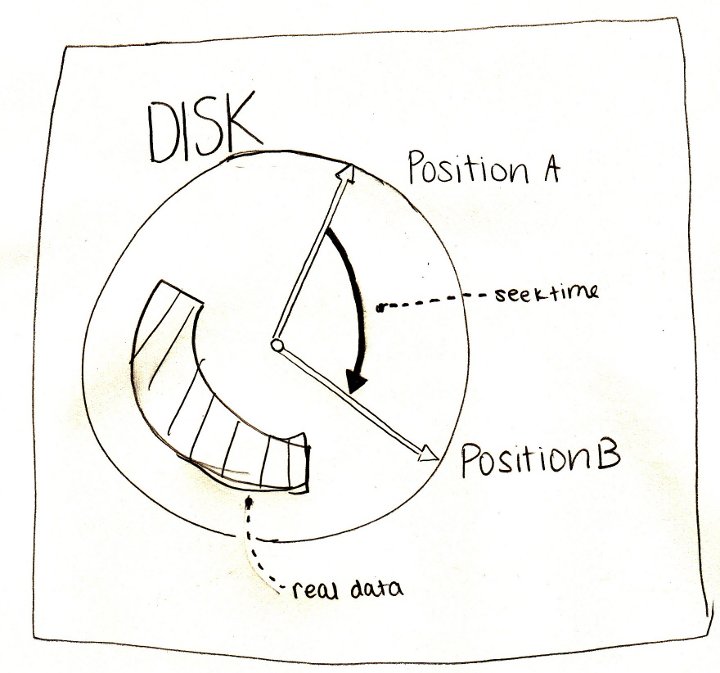 DISK
Position A
seektime
Position B
real data